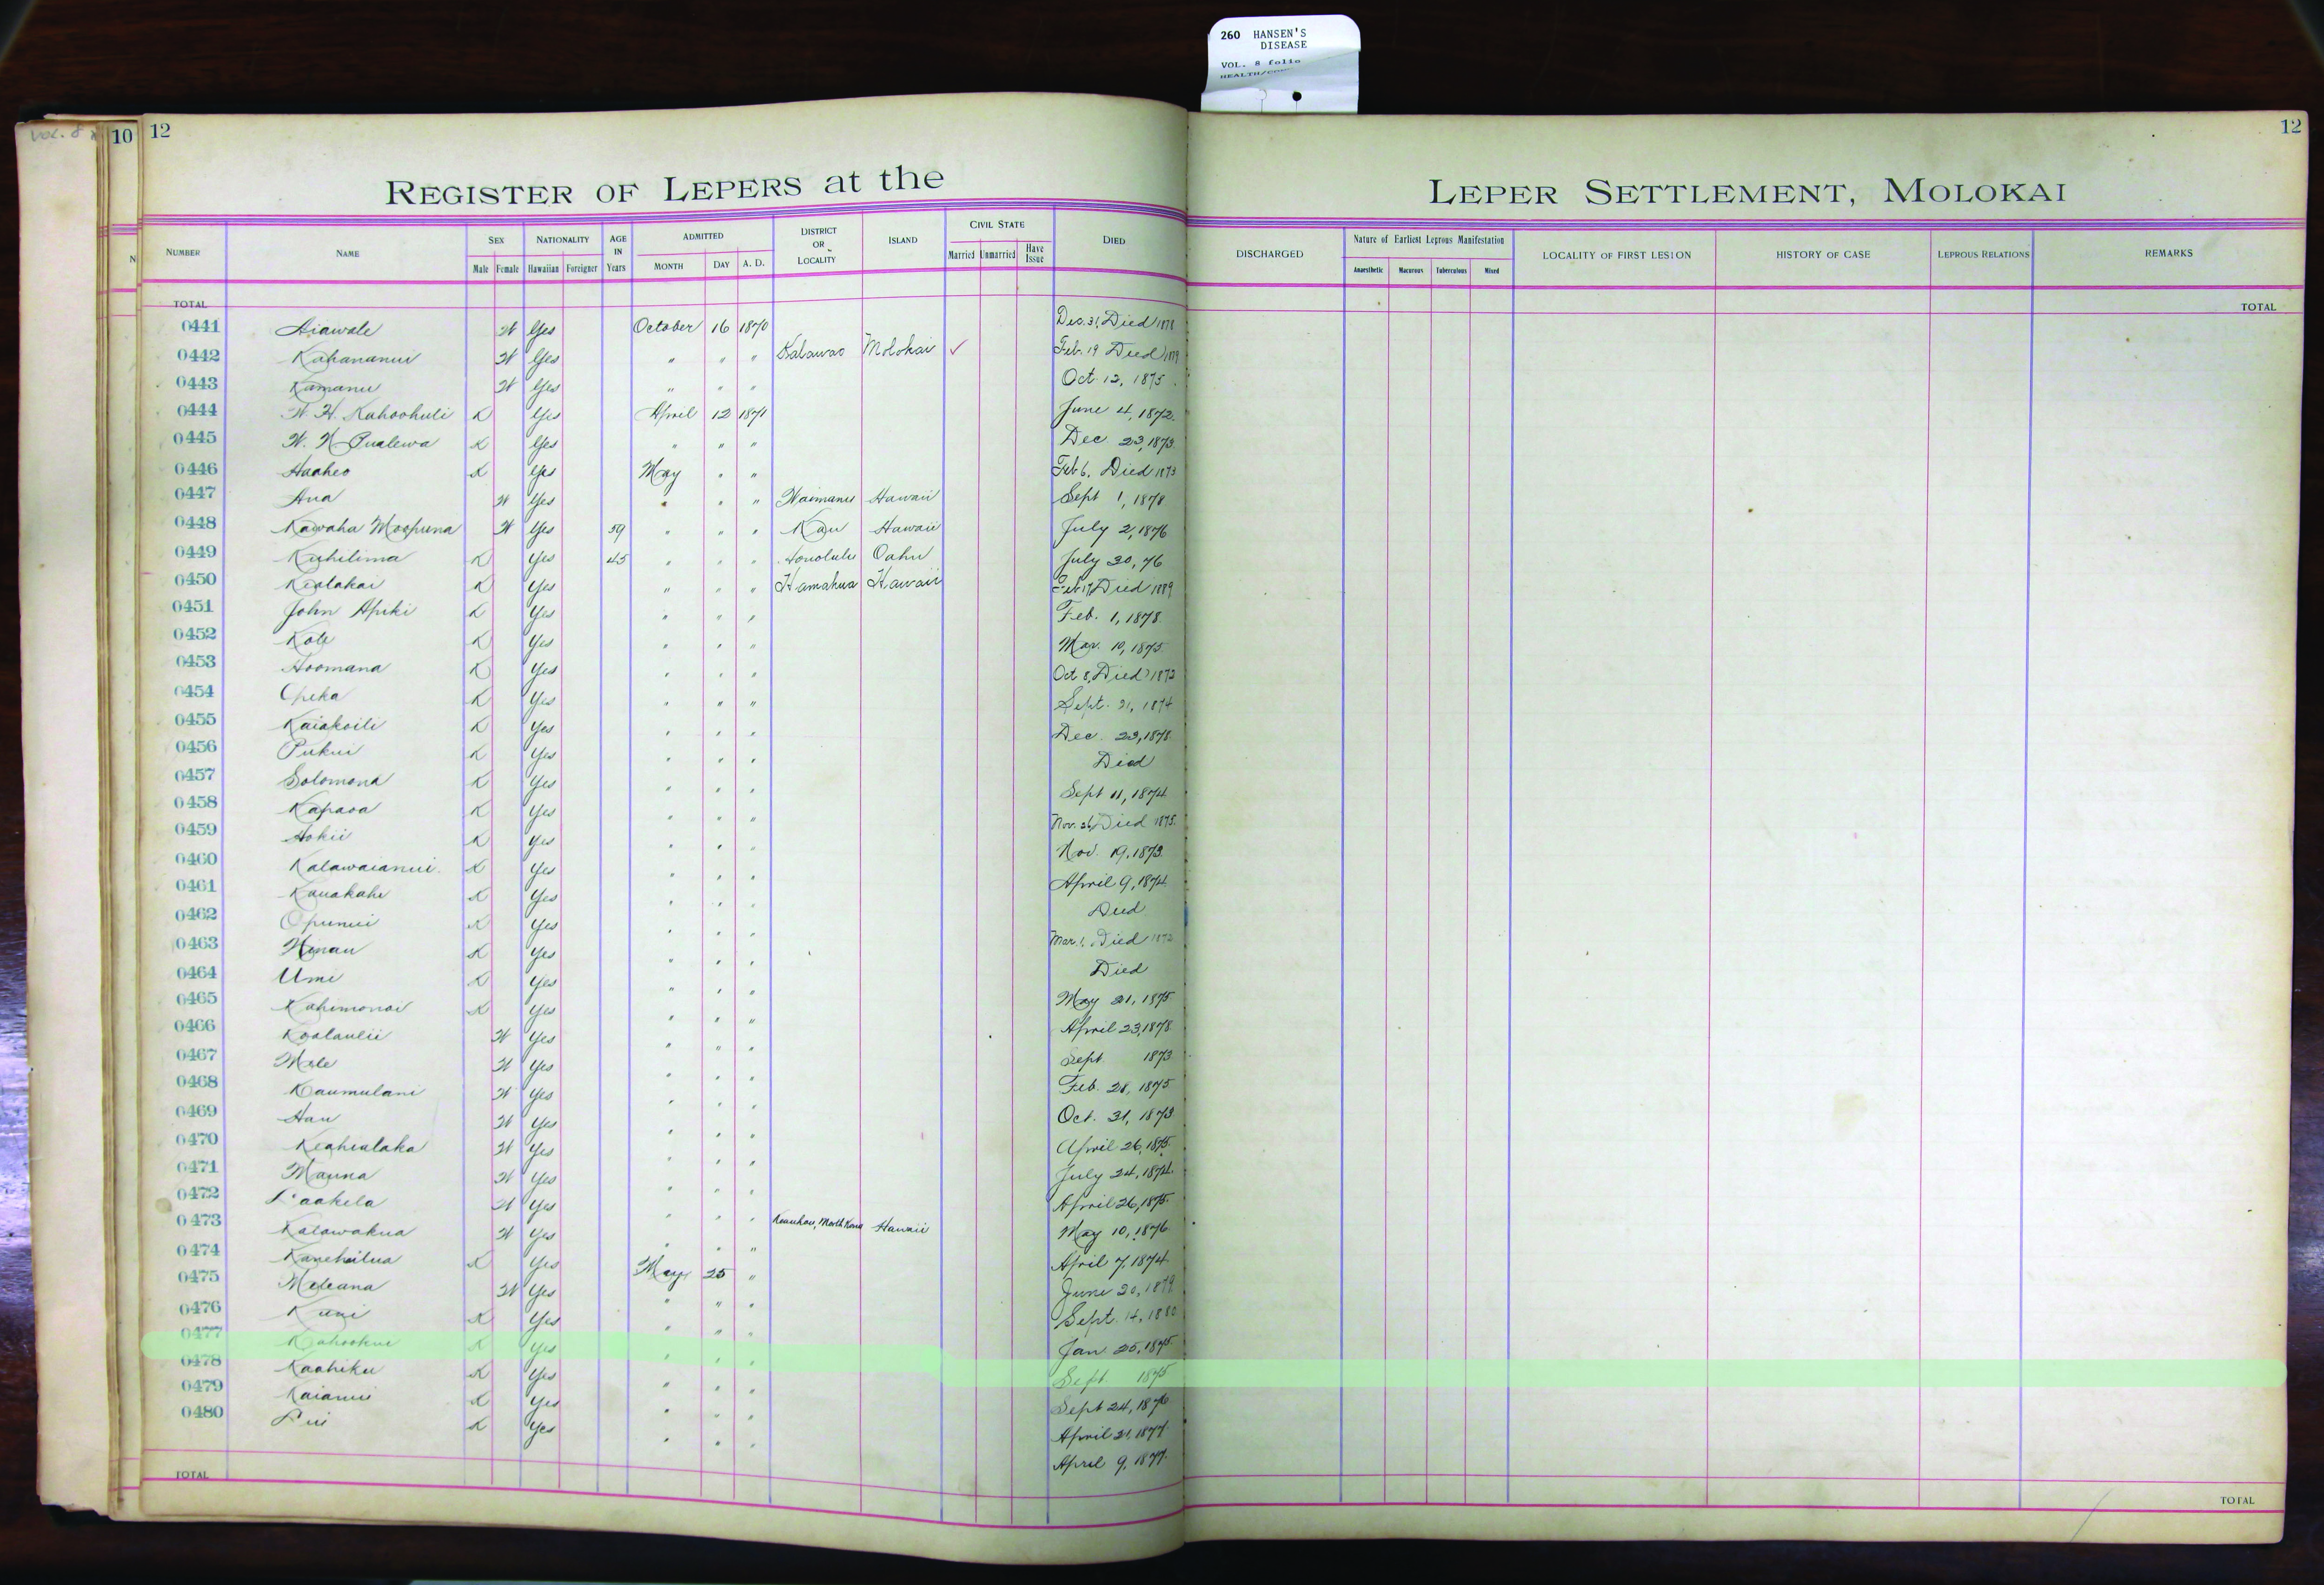 260 HANSEN'S
DISEASE
VOL. 8 folio
VOL. 8
10 12
12
REGISTER OF LEPERS at the LEPER SETTLEMENT, MOLOKAI
NUMBER NAME SEX NATIONALITY AGE IN Years ADMITTED DISTRICT OR LOCALITY ISLAND CIVIL STATE DIED DISCHARGED Nature of Earliest Leprous Manifestation LOCALITY OF FIRST LESION HISTORY OF CASE LEPROUS RELATIONS REMARKS
Male Female Hawaiian Foreigner MONTH DAY A. D. Married Unmarried Have Issue Anaesthetic Macurous Tuberculous Mixed
TOTAL TOTAL
0441 Aiawale W Yes October 16 1870 Dec. 31, Died 1878
0442 Kahananui W Yes " " " Kalawao Molokai ✓ Feb. 19 Died 1879
0443 Kamanu W Yes " " " Oct. 12, 1875
0444 W. H. Kahoohuli K Yes April 12 1871 June 4, 1872
0445 W. N. Pualewa K Yes " " " Dec 23, 1873
0446 Haaheo K Yes May " " Feb 6, Died 1873
0447 Ana W Yes " " " Waimanu Hawaii Sept 1, 1878
0448 Kawaha Moopuna W Yes 59 " " " Kau Hawaii July 2, 1876
0449 Kuhilima K Yes 45 " " " Honolulu Oahu July 30, 76
0450 Kealakai K Yes " " " Hamakua Hawaii Feb 17, Died 1889
0451 John Apiki K Yes " " " Feb. 1, 1878
0452 Kole K Yes " " " Mar. 10, 1875
0453 Hoomana K Yes " " " Oct 8, Died 1873
0454 Opeka K Yes " " " Sept. 21, 1874
0455 Kaiakoili K Yes " " " Dec. 23, 1878
0456 Pukui K Yes " " " Died
0457 Solomona K Yes " " " Sept 11, 1874
0458 Kapaoa K Yes " " " Nov. 26, Died 1875
0459 Hokii K Yes " " " Nov. 19, 1873
0460 Kalawaianui K Yes " " " April 9, 1874
0461 Kauakahi K Yes " " " Died
0462 Opunui K Yes " " " Mar. 1, Died 1873
0463 Hinau K Yes " " " Died
0464 Umi K Yes " " " May 21, 1875
0465 Kahimonoi K Yes " " " April 23, 1878
0466 Koolaulii W Yes " " " Sept 1873
0467 Mele W Yes " " " Feb. 28, 1875
0468 Kaumulani W Yes " " " Oct. 31, 1873
0469 Hau W Yes " " " April 26, 1875
0470 Keahialaka W Yes " " " July 24, 1874
0471 Mauna W Yes " " " April 26, 1875
0472 Paakela W Yes " " "
0473 Kalawakua W Yes " " " Keauhou, North Kona Hawaii May 10, 1876
0474 Kanehailua K Yes May 25 " April 7, 1874
0475 Meleana W Yes " " " June 20, 1879
0476 Kuni K Yes " " " Sept. 14, 1880
0477 Kahookui K Yes " " " Jan 25, 1875
0478 Kaahiku K Yes " " " Sept. 1875
0479 Kaianui K Yes " " " Sept 24, 1876
0480 Pii K Yes " " " April 21, 1877
April 9, 1877
TOTAL TOTAL